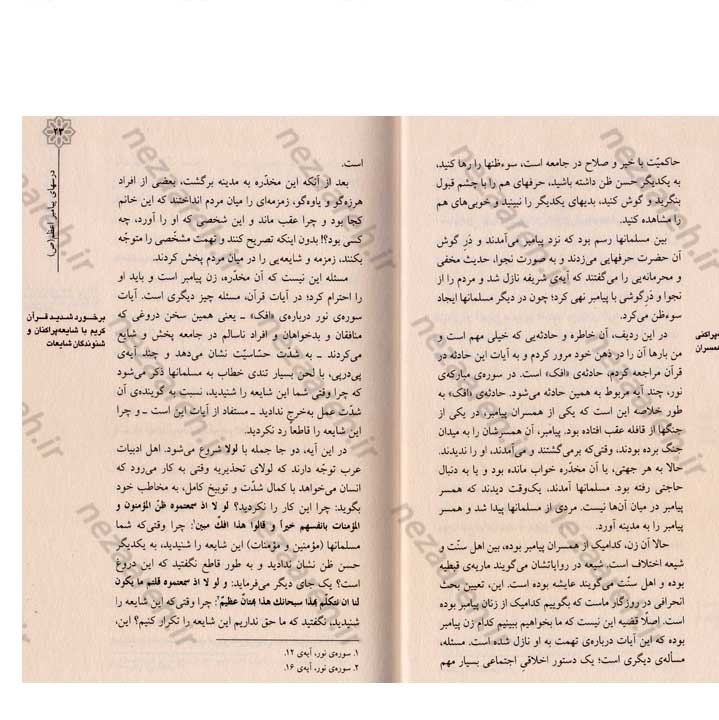 حاکمیّت با خیر و صلاح در جامعه است، سوءظنها را رها کنید،
به یکدیگر حسن ظن داشته باشید، حرفهای هم را با چشم قبول
بنگرید و گوش کنید، بدیهای یکدیگر را نبینید و خوبی‌های هم
را مشاهده کنید.
بین مسلمانها رسم بود که نزد پیامبر می‌آمدند و درِ گوش
آن حضرت حرفهایی می‌زدند و به صورت نجوا، حدیث مخفی
و محرمانه‌یی را می‌گفتند که آیه‌ی شریفه نازل شد و مردم را از
نجوا و درِگوشی با پیامبر نهی کرد؛ چون در دیگر مسلمانها ایجاد
سوءظن می‌کرد.
در این ردیف، آن خاطره و حادثه‌یی که خیلی مهم است و
من بارها آن را در ذهن خود مرور کردم و به آیات این حادثه در
قرآن مراجعه کردم، حادثه‌ی «افک» است. در سوره‌ی مبارکه‌ی
نور، چند آیه مربوط به همین حادثه می‌شود. حادثه‌ی «افک» به
طور خلاصه این است که یکی از همسران پیامبر، در یکی از
جنگها از قافله عقب افتاده بود. پیامبر، آن همسرشان را به میدان
جنگ برده بودند، وقتی‌که برمی‌گشتند و می‌آمدند، او را ندیدند.
حالا به هر جهتی، یا آن مخدّره خواب مانده بود و یا به دنبال
حاجتی رفته بود. مسلمانها آمدند، یک‌وقت دیدند که همسر
پیامبر در میان آن‌ها نیست. مردی از مسلمانها پیدا شد و همسر
پیامبر را به مدینه آورد.
حالا آن زن، کدامیک از همسران پیامبر بوده، بین اهل سنّت و
شیعه اختلاف است. شیعه در روایاتشان می‌گویند ماریه‌ی قبطیه
بوده و اهل سنّت می‌گویند عایشه بوده است. این، تعیین بحث
انحرافی در روزگار ماست که بگوییم کدامیک از زنان پیامبر بوده
است. اصلًا قضیه این نیست که ما بخواهیم ببینیم کدام زن پیامبر
بوده که این آیات درباره‌ی تهمت به او نازل شده است. مسئله،
مسأله‌ی دیگری است؛ یک دستور اخلاقیِ اجتماعی بسیار مهم
‌پراکنی
همسران
۲۳
درسهای پیامبر اعظم(ص)
است.
بعد از آنکه این مخدّره به مدینه برگشت، بعضی از افراد
هرزه‌گو و یاوه‌گو، زمزمه‌ای را میان مردم انداختند که این خانم
کجا بود و چرا عقب ماند و این شخصی که او را آورد، چه
کسی بود؟! بدون اینکه تصریح کنند و تهمت مشخّصی را متوجّه
بکنند، زمزمه و شایعه‌یی را در میان مردم پخش کردند.
مسئله این نیست که آن مخدّره، زن پیامبر است و باید او
را احترام کرد؛ در آیات قرآن، مسئله چیز دیگری است. آیات
سوره‌ی نور درباره‌ی «افک» ـ یعنی همین سخن دروغی که
منافقان و بدخواهان و افراد ناسالم در جامعه پخش و شایع
می‌کردند ـ به شدّت حسّاسیّت نشان می‌دهد و چند آیه‌ی
پی‌درپی، با لحن بسیار تندی خطاب به مسلمانها ذکر می‌شود
که چرا وقتی شما این شایعه را شنیدید، نسبت به گوینده‌ی آن
شدّت عمل به‌خرج ندادید ـ مستفاد از آیات این است ـ و چرا
این شایعه را قاطعاً رد نکردید.
در این آیه، دو جا جمله با لولا شروع می‌شود. اهل ادبیات
عرب توجّه دارند که لولای تحذیریه وقتی به کار می‌رود که
انسان می‌خواهد با کمال شدّت و توبیخ کامل، به مخاطب خود
بگوید: چرا این کار را نکردید؟ لو لا اذ سمعتموه ظنّ المؤمنون و
المؤمنات بانفسهم خیراً و قالوا هذا افکٌ مبین۱: چرا وقتی‌که شما
مسلمانها (مؤمنین و مؤمنات) این شایعه را شنیدید، به یکدیگر
حسن ظن نشان ندادید و به طور قاطع نگفتید که این دروغ
است؟ یک جای دیگر می‌فرماید: و لو لا اذ سمعتموه قلتم ما یکون
لنا ان نتکلّم بهذا سبحانک هذا بهتانٌ عظیمٌ۲: چرا وقتی‌که این شایعه را
شنیدید، نگفتید که ما حق نداریم این شایعه را تکرار کنیم؟ این،
برخورد شدید قرآن
کریم با شایعه‌پراکنان و
شنوندگان شایعات
۱. سوره‌ی نور، آیه‌ی ۱۲.
۲. سوره‌ی نور، آیه‌ی ۱۶.
nezareh.ir